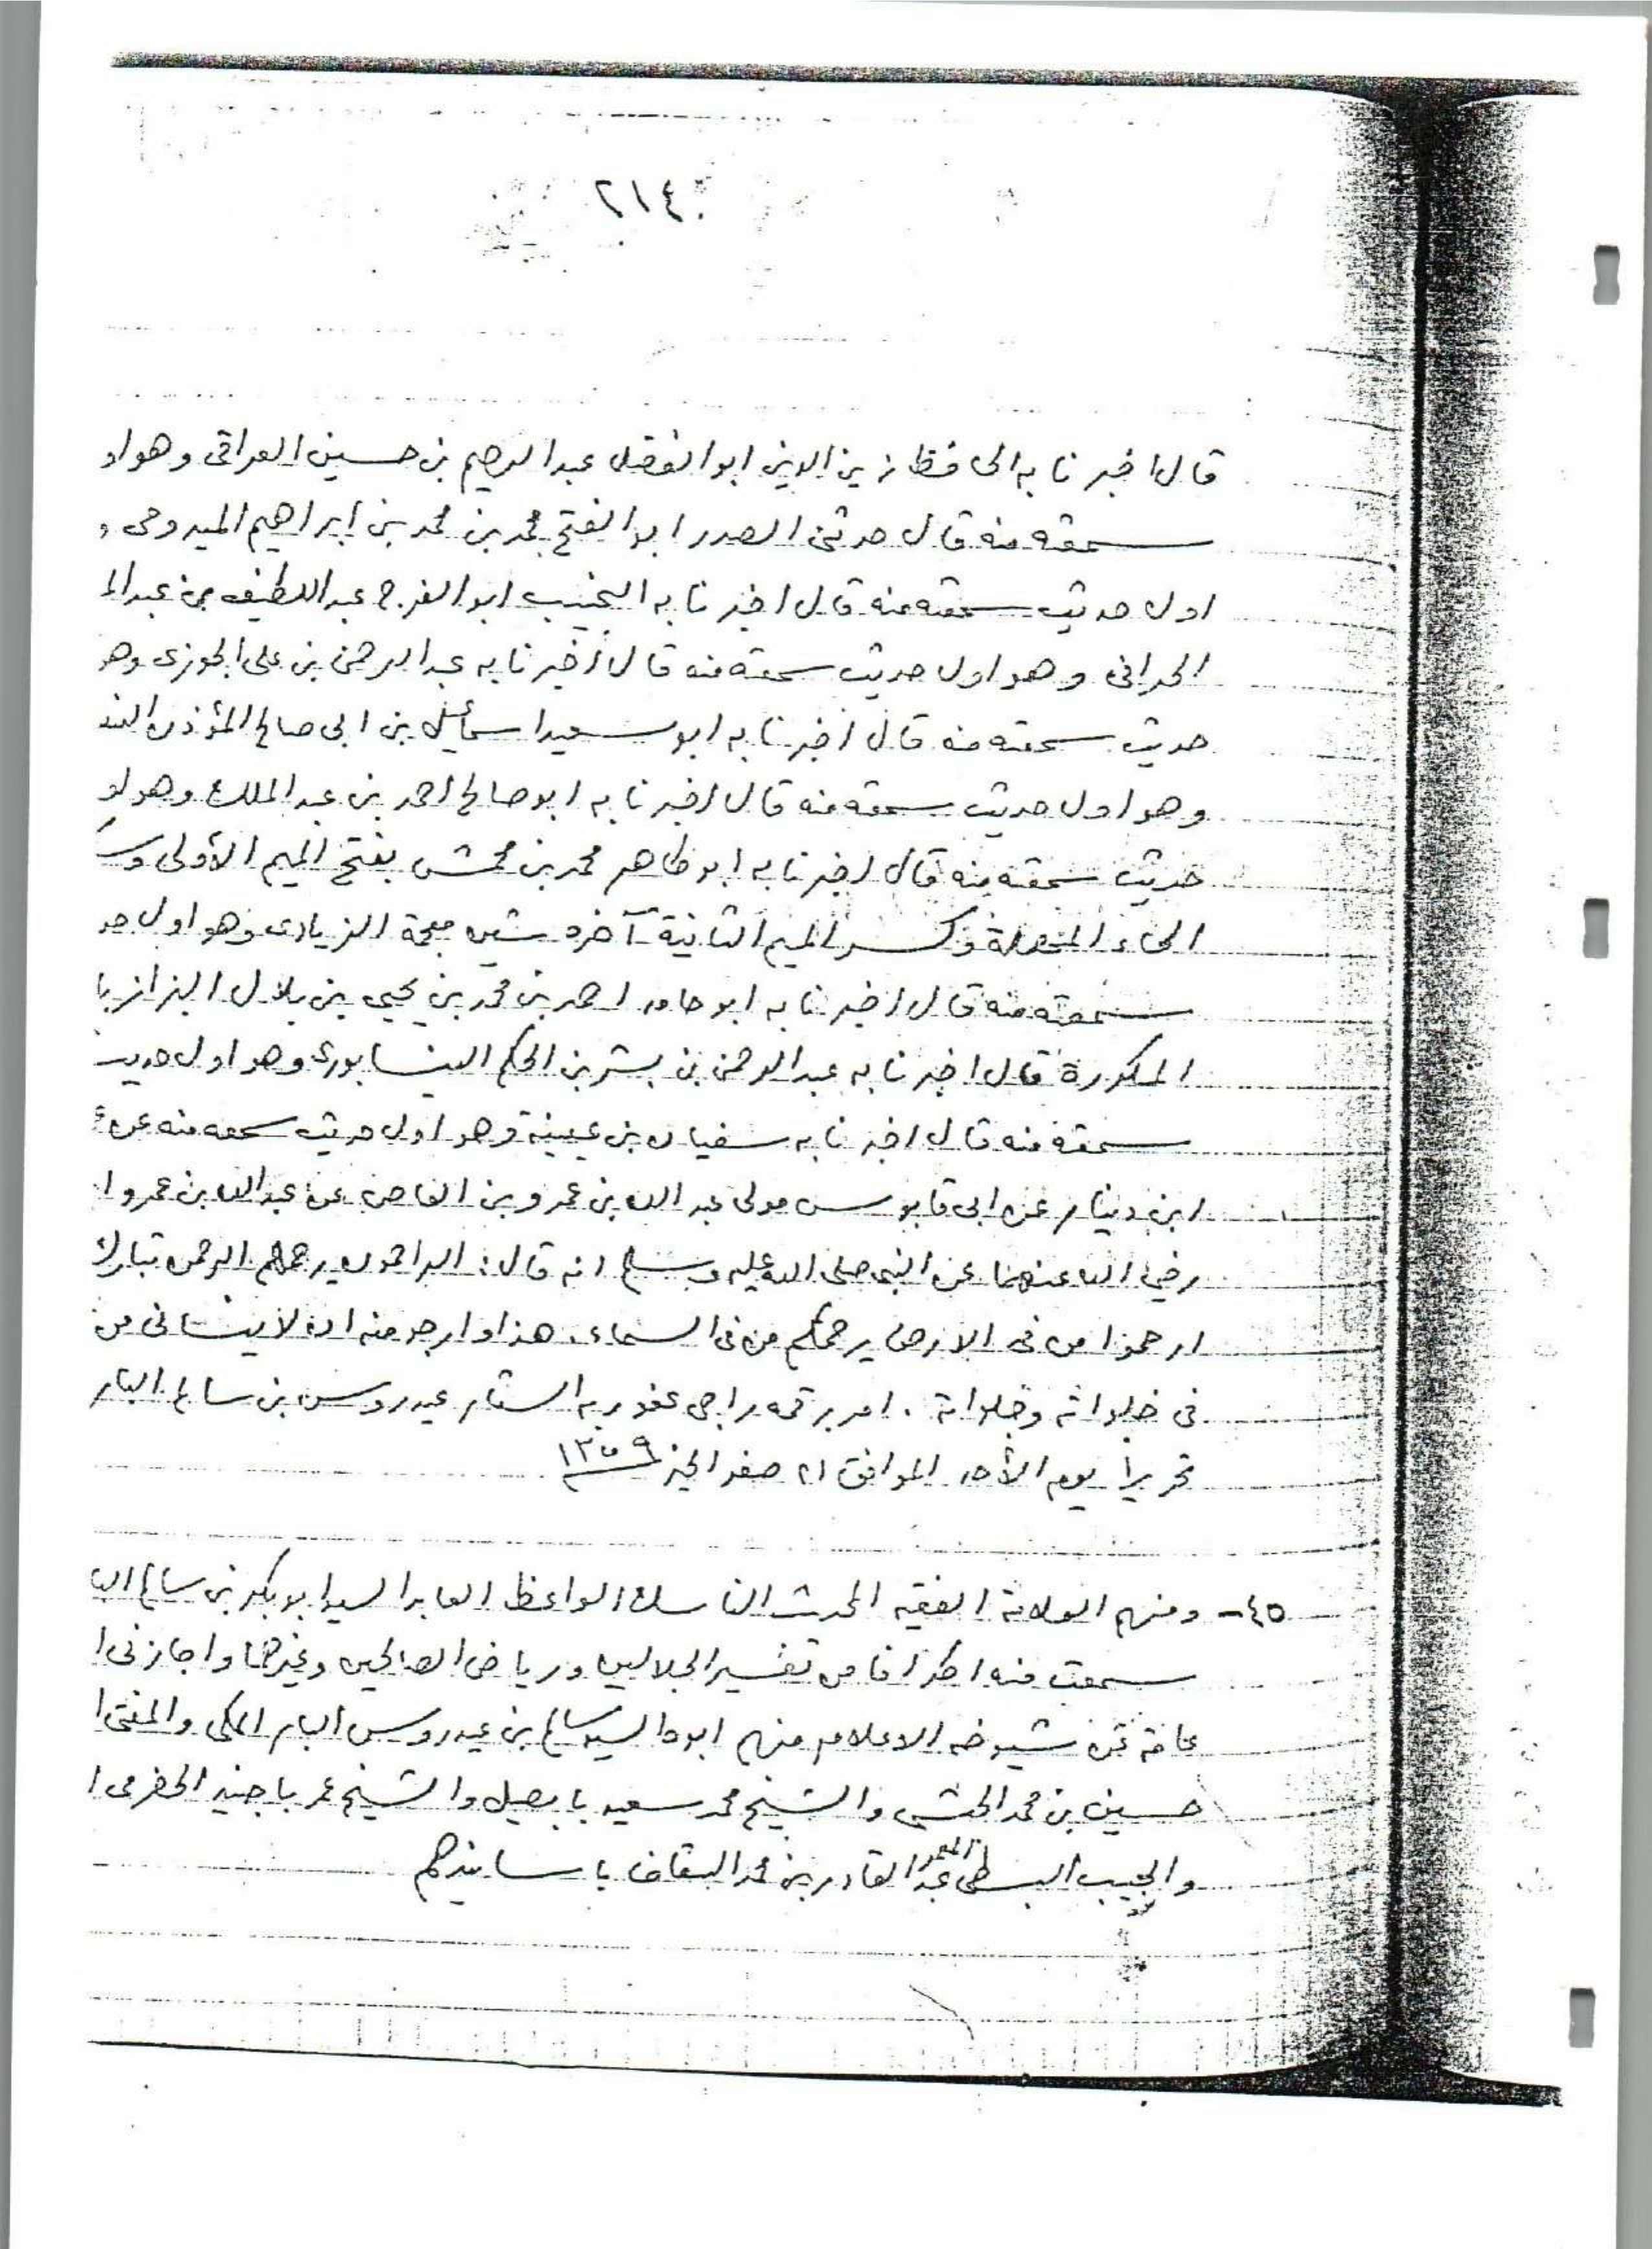 ٢١٤
قال اخبرنا به الحافظ زين الدين ابو الفضل عبد الرحيم بن حسين العراقى وهو او
سمعته منه قال حدثنى الصدر ابو الفتح محمد بن محمد بن ابراهيم الميدومى و
اول حديث سمعته منه قال اخبرنا به النجيب ابو الفرج عبد اللطيف بن عبد الم
الحرانى وهو اول حديث سمعته منه قال أخبرنا به عبد الرحمن بن على الجوزى وهو
حديث سمعته منه قال اخبرنا به ابو سعيد اسمائيل بن ابى صالح المؤذن الند
وهو اول حديث سمعته منه قال اخبرنا به ابو صالح احمد بن عبد الملك وهو او
حديث سمعته منه قال اخبرنا به ابو طاهر محمد بن محمش بفتح الميم الأولى وس
الحاء المهملة وكسر الميم الثانية آخره شين معجمة الزيادى وهو اول حد
سمعته منه قال اخبرنا به ابو حامد احمد بن محمد بن يحيى بن بلال البزاز با
المكررة قال اخبرنا به عبد الرحمن بن بشر بن الحكم النيسابورى وهو اول حديث
سمعته منه قال اخبرنا به سفيان بن عيينة وهو اول حديث سمعه منه عن ع
ابن دينار عن ابى قابوس مولى عبد الله بن عمرو بن العاص عن عبد الله بن عمرو ا
رضي الله عنهما عن النبى صلى الله عليه وسلم انه قال: الراحمون يرحمهم الرحمن تبارك
ارحموا من فى الارض يرحمكم من فى السماء، هذا وارجو منه ان لا ينسانى من
فى خلواته وجلواته. امر برقمه راجى عفو ربه الستار عيدروس بن سالم البار
تحريرا يوم الأحد الموافق ٢١ صفر الخير ١٣٥٩
٤٥- ومنهم العلامة الفقيه المحدث الناسك الواعظ العابد السيد ابو بكر بن سالم البا
سمعت منه اطرافا من تفسير الجلالين ورياض الصالحين وغيرهما واجازنى ا
عامة عن شيوخه الاعلام منهم ابوه السيد سالم بن عيدروس البار المكى والمفتى ا
حسين بن محمد الحبشى والشيخ محمد سعيد بابصيل والشيخ عمر باجنيد الحضرمى ا
والحبيب المعمر عبد القادر بن محمد السقاف باسانيدهم